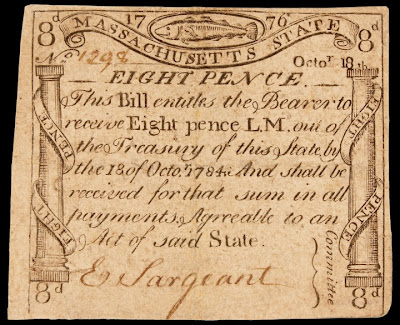 8d 17 76 8d
MASSACHUSETTS STATE
No. 1298 Octor. 18th.
EIGHT PENCE.
This Bill entitles the Bearer to
receive Eight pence L.M. out of
the Treasury of this State, by
the 18 of Octor. 1784. And shall be
received for that sum in all
payments, Agreable to an
Act of said State.
E Sargeant
Committee
EIGHT PENCE
EIGHT PENCE
8d 8d